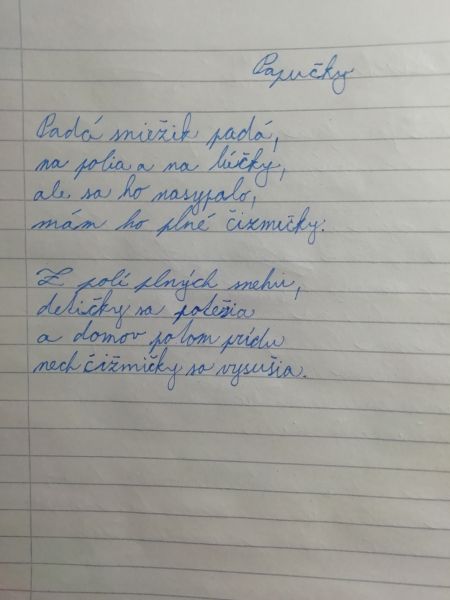 Papučky
Padá sniežik padá,
na polia a na lúčky,
ale sa ho nasypalo,
mám ho plné čizmičky.
Z polí plných snehu,
detičky sa potešia
a domov potom prídu
nech čižmičky sa vysušia.